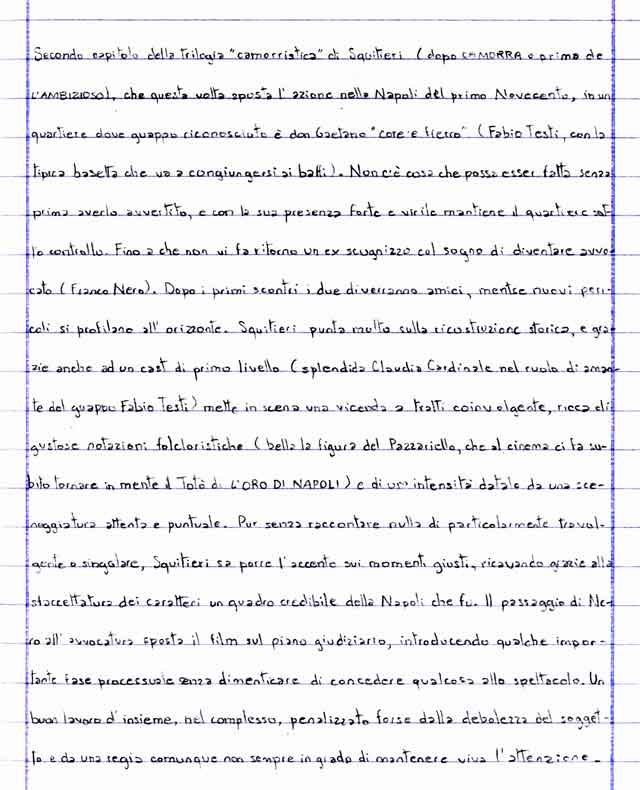 Secondo capitolo della trilogia "camorristica" di Squitieri (dopo CAMORRA e prima de
L'AMBIZIOSO), che questa volta sposta l'azione nella Napoli del primo Novecento, in un
quartiere dove guappo riconosciuto è don Gaetano "core 'e fierro" (Fabio Testi, con la
tipica basetta che va a congiungersi ai baffi). Non c'è cosa che possa esser fatta senza
prima averlo avvertito, e con la sua presenza forte e virile mantiene il quartiere sot-
to controllo. Fino a che non vi fa ritorno un ex scugnizzo col sogno di diventare avvo-
cato (Franco Nero). Dopo i primi scontri i due diverranno amici, mentre nuovi peri-
coli si profilano all'orizzonte. Squitieri punta molto sulla ricostruzione storica, e gra-
zie anche ad un cast di primo livello (splendida Claudia Cardinale nel ruolo di aman-
te del guappo Fabio Testi) mette in scena una vicenda a tratti coinvolgente, ricca di
gustose notazioni folcloristiche (bella la figura del Pazzariello, che al cinema ci fa su-
bito tornare in mente il Totò di L'ORO DI NAPOLI) e di un'intensità datale da una sce-
neggiatura attenta e puntuale. Pur senza raccontare nulla di particolarmente travol-
gente o singolare, Squitieri sa porre l'accento sui momenti giusti, ricavando grazie alla
sfaccettatura dei caratteri un quadro credibile della Napoli che fu. Il passaggio di Ne-
ro all'avvocatura sposta il film sul piano giudiziario, introducendo qualche impor-
tante fase processuale senza dimenticare di concedere qualcosa allo spettacolo. Un
buon lavoro d'insieme, nel complesso, penalizzato forse dalla debolezza del sogget-
to e da una regia comunque non sempre in grado di mantenere viva l'attenzione.